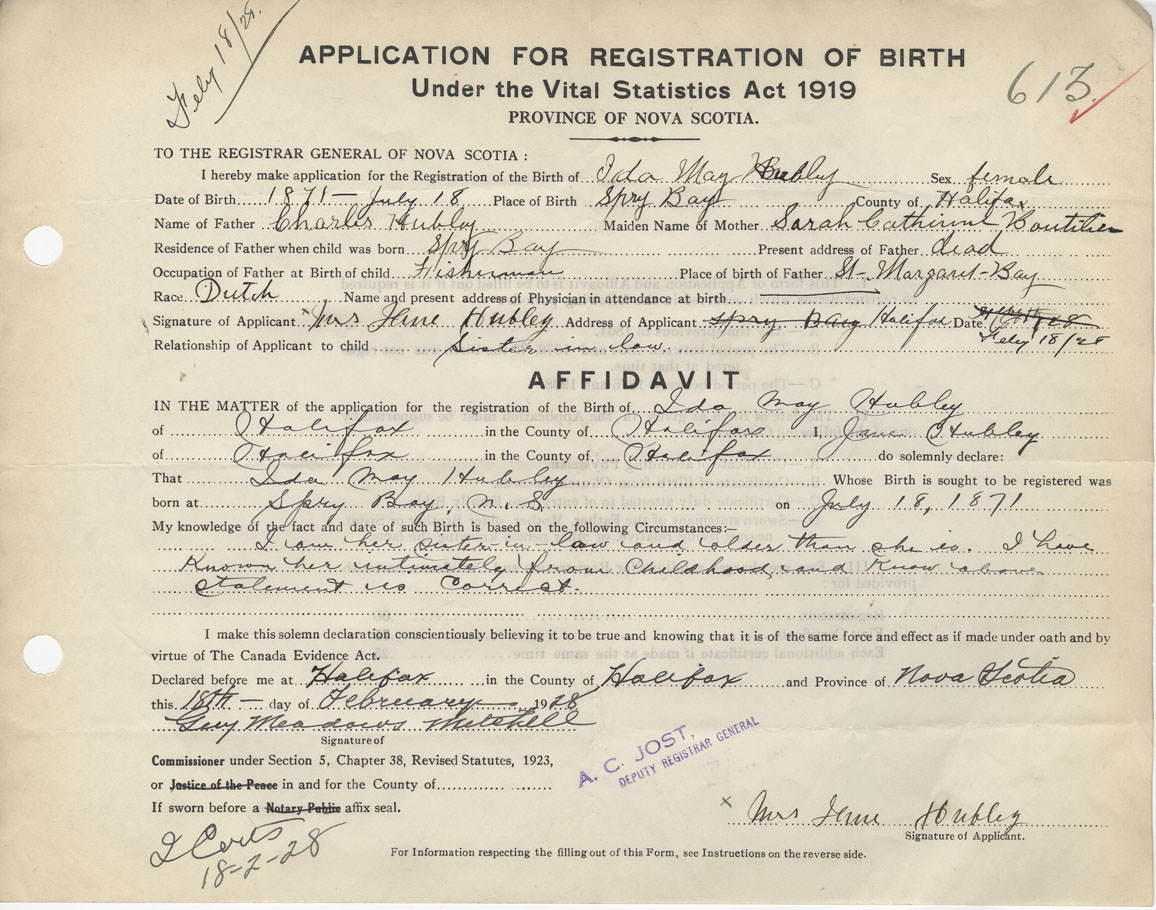 Feby 18/28.
APPLICATION FOR REGISTRATION OF BIRTH
613.
Under the Vital Statistics Act 1919
PROVINCE OF NOVA SCOTIA.
TO THE REGISTRAR GENERAL OF NOVA SCOTIA :
I hereby make application for the Registration of the Birth of Ida May Hubley Sex female
Date of Birth 1871 - July 18 Place of Birth Spry Bay County of Halifax
Name of Father Charles Hubley Maiden Name of Mother Sarah Catherine Boutilier
Residence of Father when child was born Spry Bay Present address of Father dead
Occupation of Father at Birth of child Fisherman Place of birth of Father St- Margaret-Bay
Race Dutch Name and present address of Physician in attendance at birth
Signature of Applicant x Mrs Jane Hubley Address of Applicant Spry Bay Halifax Date
Feby 18/28
Relationship of Applicant to child Sister in law.
AFFIDAVIT
IN THE MATTER of the application for the registration of the Birth of Ida May Hubley
of Halifax in the County of Halifax I, Jane Hubley
of Halifax in the County of Halifax do solemnly declare:
That Ida May Hubley Whose Birth is sought to be registered was
born at Spry Bay, N.S. on July 18, 1871
My knowledge of the fact and date of such Birth is based on the following Circumstances:—
I am her sister-in-law and older than she is. I have
Known her intimately from Childhood, and Know above
Statement is Correct.
I make this solemn declaration conscientiously believing it to be true and knowing that it is of the same force and effect as if made under oath and by
virtue of The Canada Evidence Act.
Declared before me at Halifax in the County of Halifax and Province of Nova Scotia
this 18th day of February 1928
Guy Meadows Mitchell
Signature of
A. C. JOST,
DEPUTY REGISTRAR GENERAL
Commissioner under Section 5, Chapter 38, Revised Statutes, 1923,
or Justice of the Peace in and for the County of
If sworn before a Notary Public affix seal.
x Mrs Jane Hubley
Signature of Applicant.
2 Certs
18-2-28
For Information respecting the filling out of this Form, see Instructions on the reverse side.